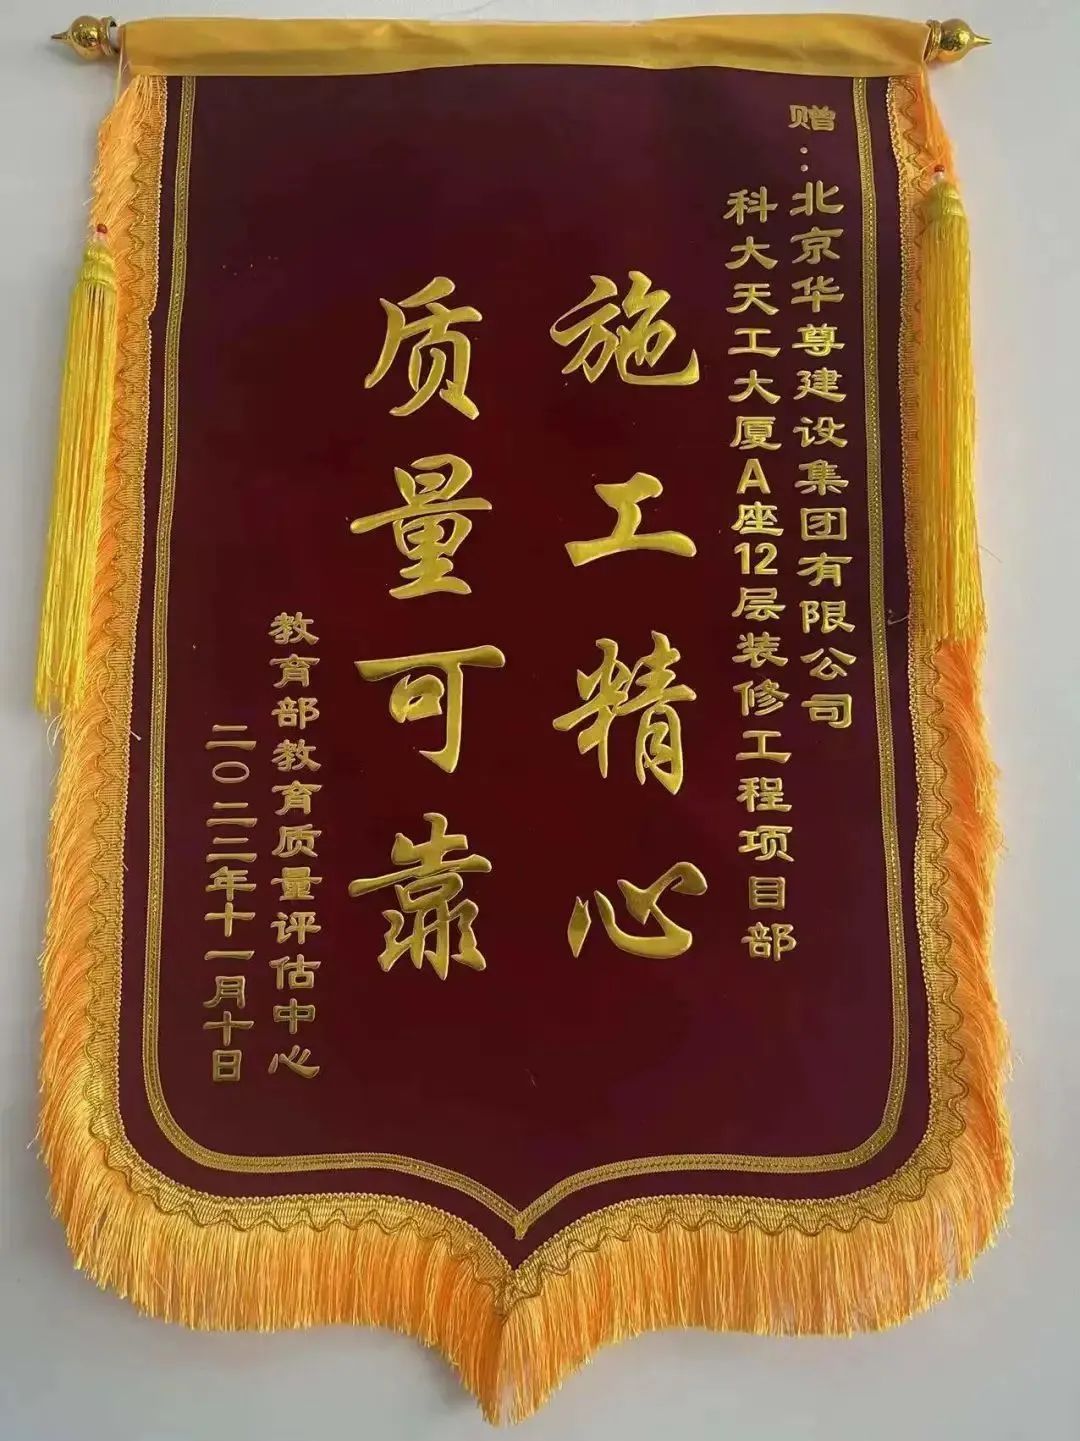 赠：北京华尊建设集团有限公司
科大天工大厦A座12层装修工程项目部
施工精心
质量可靠
教育部教育质量评估中心
二〇二三年十一月十日